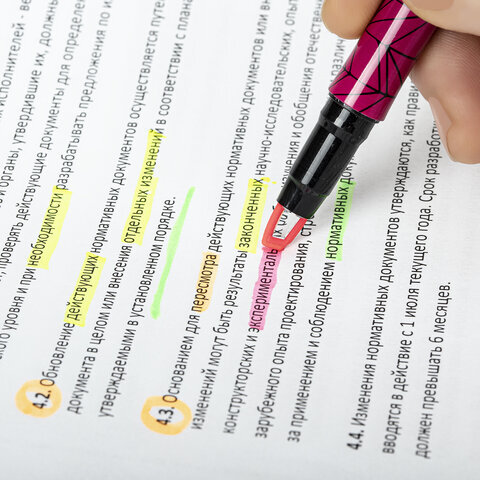 исполнителей - ве
и органы, утвердившие их, должны
, проверять действующие документы для определе
ого уровня и при необходимости разрабатывать предложения по и
4.2. Обновление действующих нормативных документов осуществляется путем
документа в целом или внесения отдельных изменений в соответствии с плана
утверждаемыми в установленном порядке.
4.3. Основанием для пересмотра действующих нормативных документов или вн
изменений могут быть результаты законченных научно-исследовательских, опыт
конструкторских и эксперименталь обобщения отечестве
зарубежного опыта проектирования, различ
за применением и соблюдением нормативных док
4.4. Изменения нормативных документов утверждаются, как прави
вводятся в действие с 1 июля текущего года. Срок разработ
должен превышать 6 месяцев.